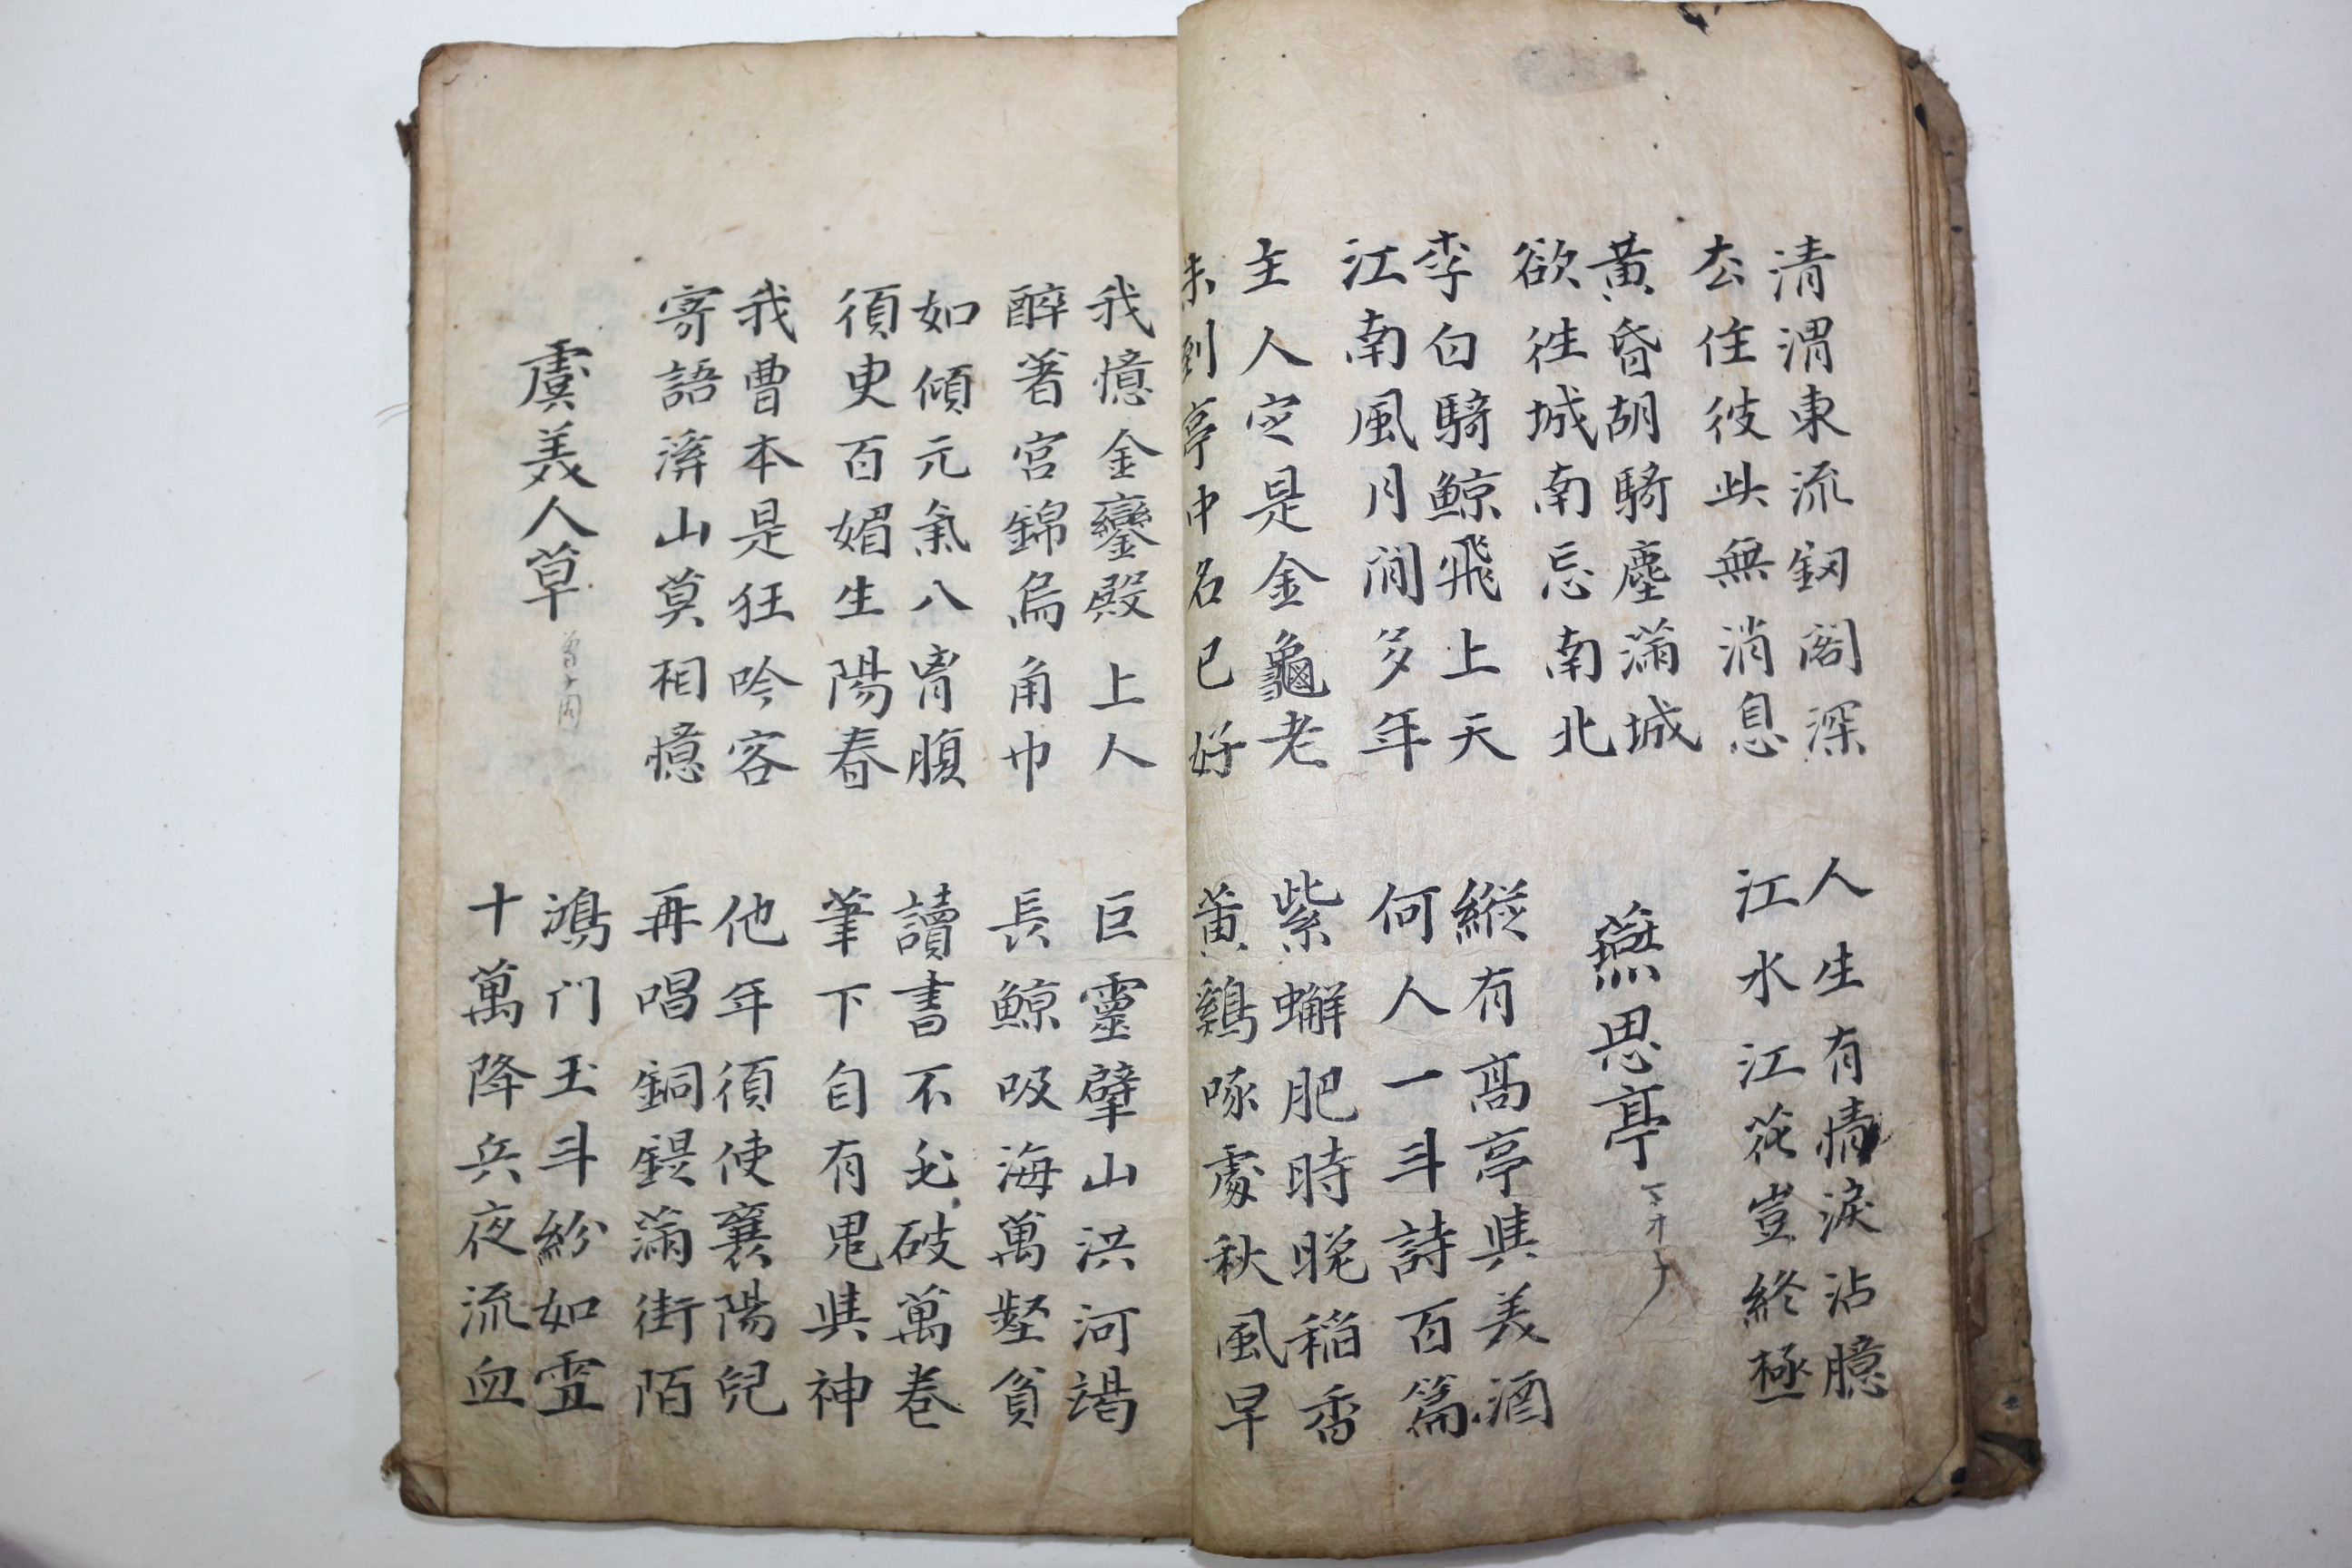 清渭東流釼閣深
去住彼此無消息
人生有情淚沾臆
江水江花豈終極
黃昏胡騎塵滿城
欲往城南忘南北
燕思亭 馬才子
李白騎鯨飛上天
江南風月閒多年
縱有高亭與美酒
何人一斗詩百篇
主人定是金龜老
未到亭中名已好
紫蠏肥時晚稻香
黃鷄啄處秋風早
我憶金鑾殿上人
醉著宮錦烏角巾
巨靈擘山洪河竭
長鯨吸海萬壑貧
如傾元氣入胷腹
須臾百媚生陽春
讀書不必破萬卷
筆下自有鬼與神
我曹本是狂吟客
寄語溪山莫相憶
他年須使襄陽兒
再唱銅鍉滿街陌
虞美人草 曾子固
鴻門玉斗紛如雪
十萬降兵夜流血